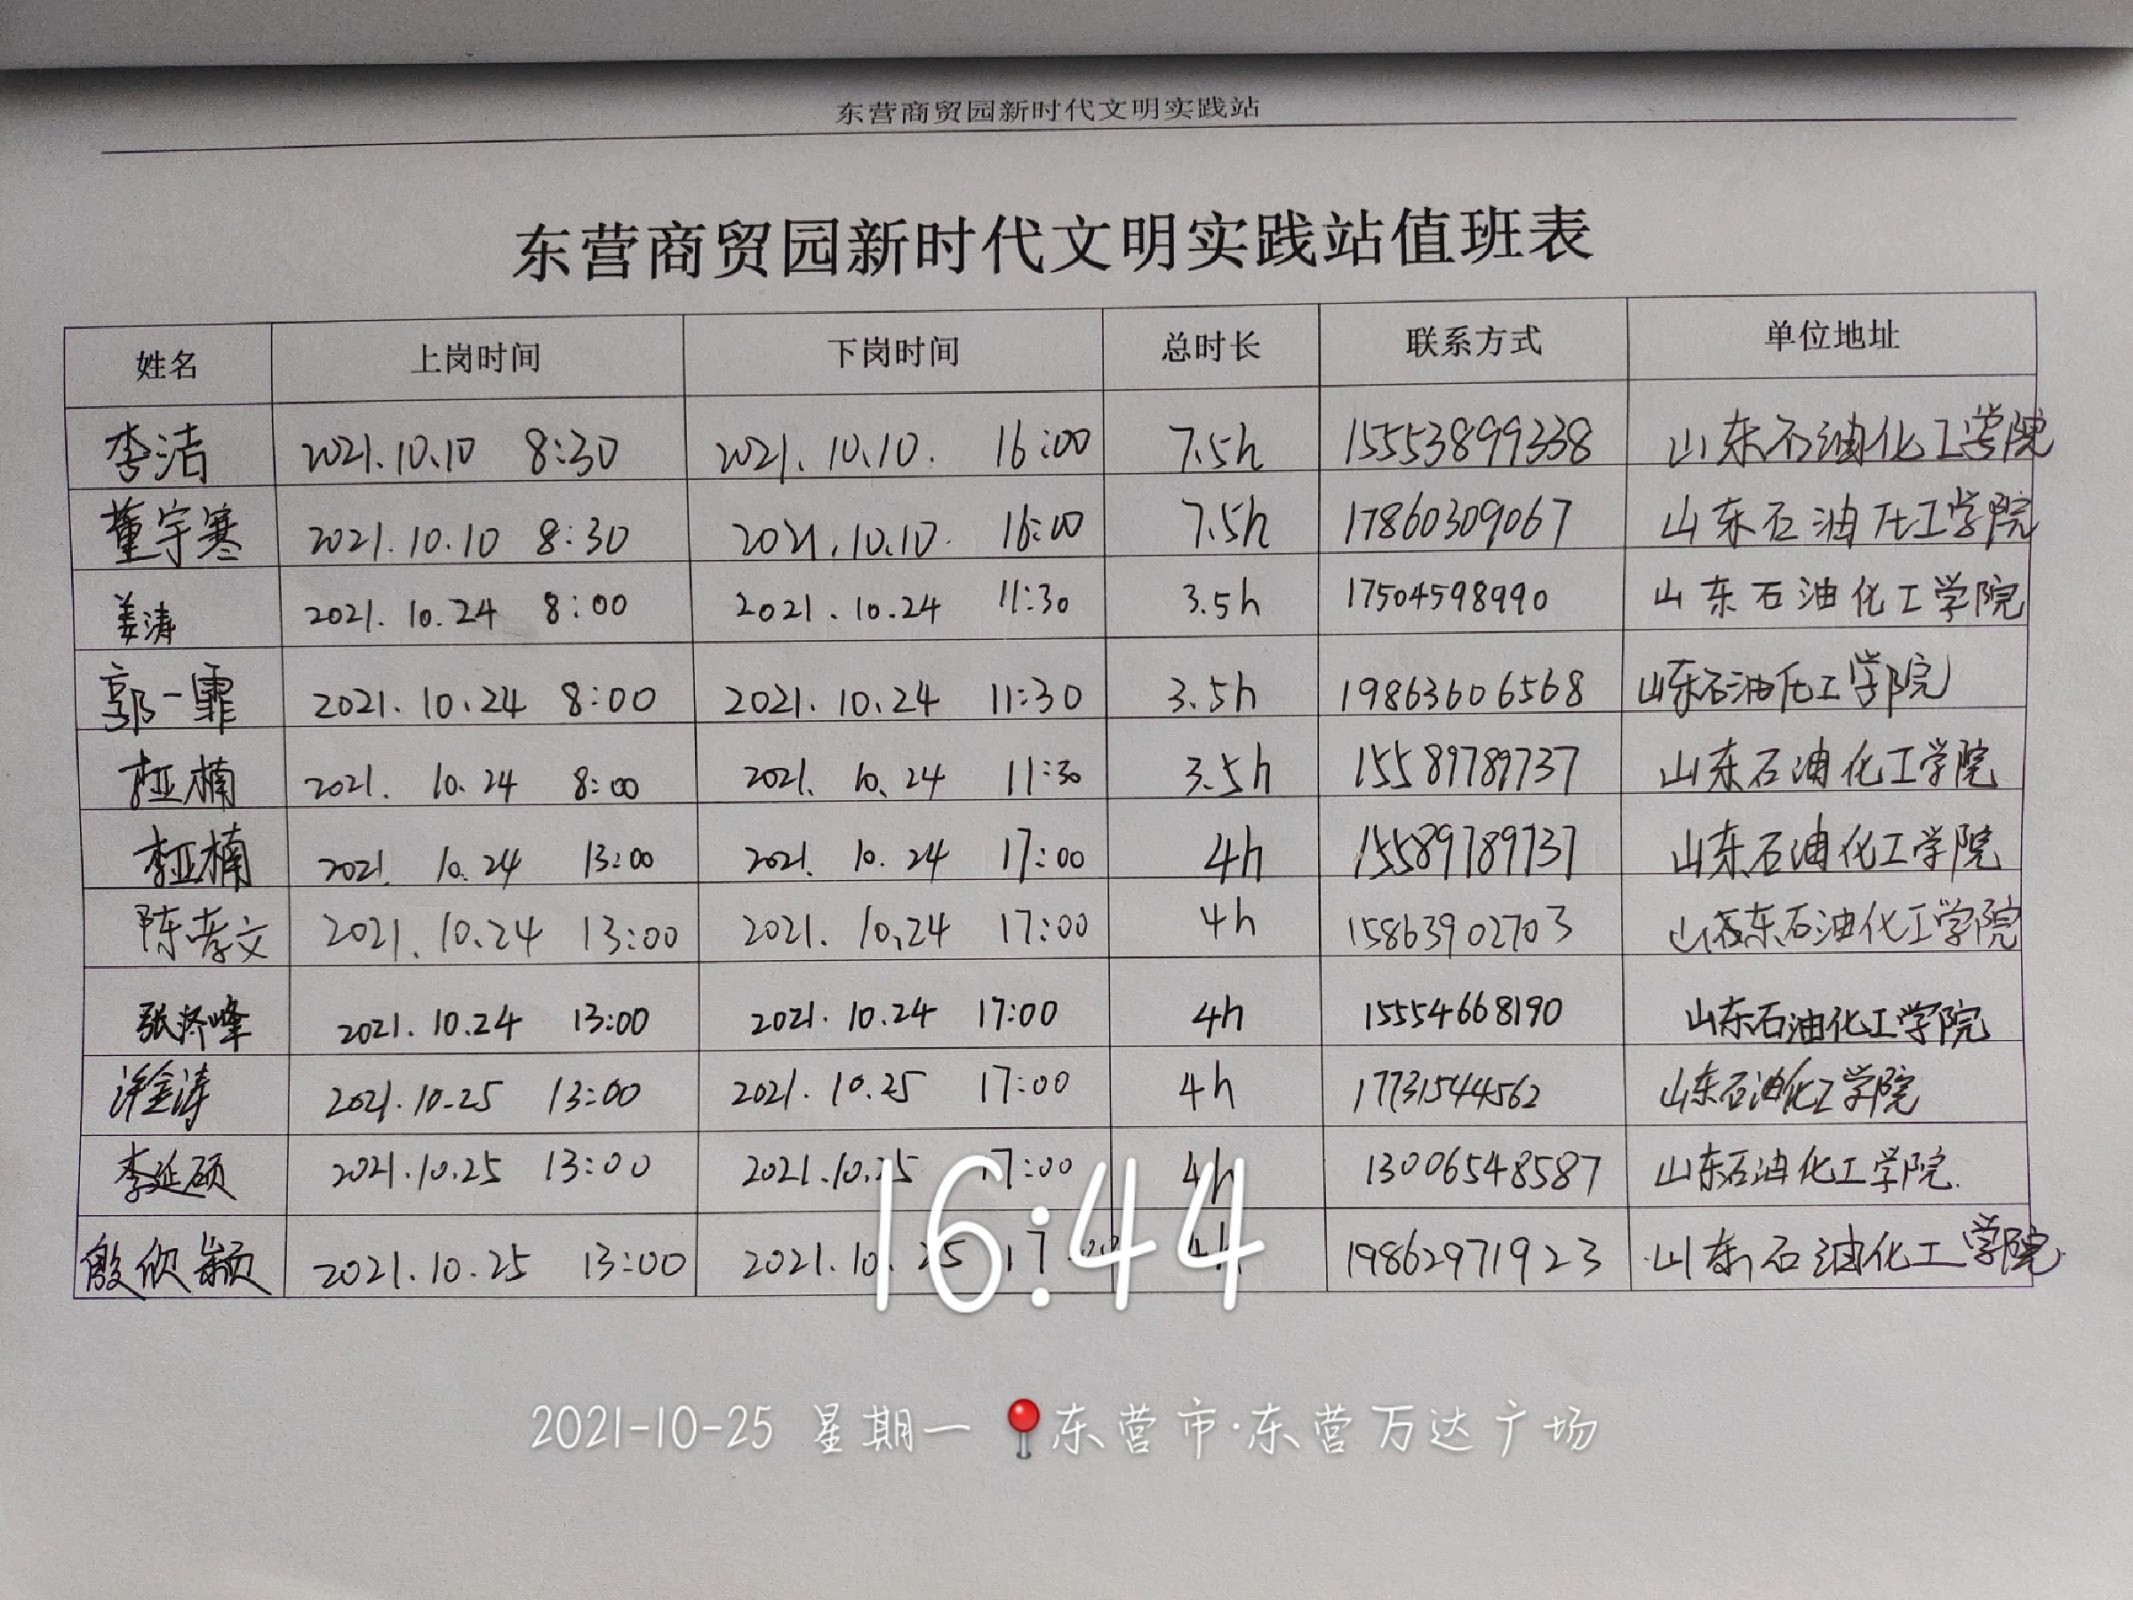 东营商贸园新时代文明实践站
东营商贸园新时代文明实践站值班表
姓名 上岗时间 下岗时间 总时长 联系方式 单位地址
李洁 2021.10.10 8:30 2021.10.10. 16:00 7.5h 15553899338 山东石油化工学院
董宇寒 2021.10.10 8:30 2021.10.10. 16:00 7.5h 17860309067 山东石油化工学院
姜涛 2021.10.24 8:00 2021.10.24 11:30 3.5h 17504598990 山东石油化工学院
郭一霏 2021.10.24 8:00 2021.10.24 11:30 3.5h 19863606568 山东石油化工学院
李亚楠 2021.10.24 8:00 2021.10.24 11:30 3.5h 15589789737 山东石油化工学院
李亚楠 2021.10.24 13:00 2021.10.24 17:00 4h 15589789737 山东石油化工学院
陈孝文 2021.10.24 13:00 2021.10.24 17:00 4h 15863902703 山东石油化工学院
2021.10.24 13:00 2021.10.24 17:00 4h 15554668190 山东石油化工学院
许金涛 2021.10.25 13:00 2021.10.25 17:00 4h 17731544562 山东石油化工学院
李延硕 2021.10.25 13:00 2021.10.25 17:00 4h 13006548587 山东石油化工学院.
殷欣颖 2021.10.25 13:00 2021.10.25 17:00 4h 19862971923 山东石油化工学院
16:44
2021-10-25 星期一 东营市·东营万达广场